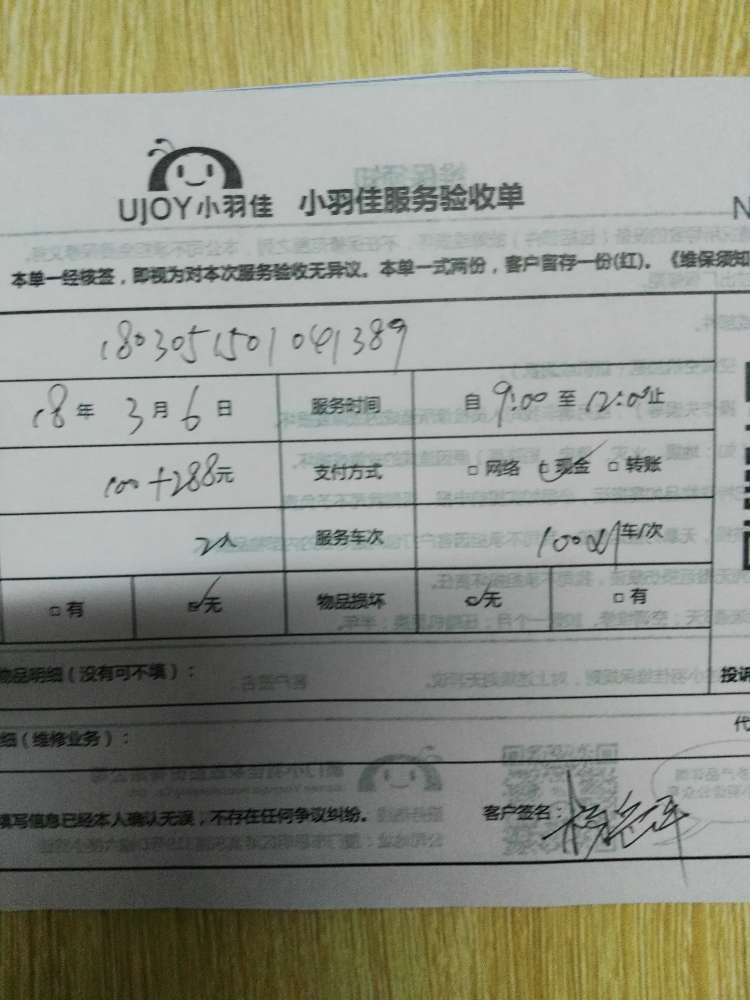 UJOY小羽佳 小羽佳服务验收单
N
本单一经核签，即视为对本次服务验收无异议。本单一式两份，客户留存一份(红)。《维保须知
1803051501041389
18年 3月6日 服务时间 自 9:00 至 12:00止
100+288元 支付方式 □网络 □现金 □转账
2人 服务车次 车/次
□有 □无 物品损坏 □无 □有
物品明细（没有可不填）： 投诉
细（维修业务）： 代
填写信息已经本人确认无误，不存在任何争议纠纷。 客户签名：